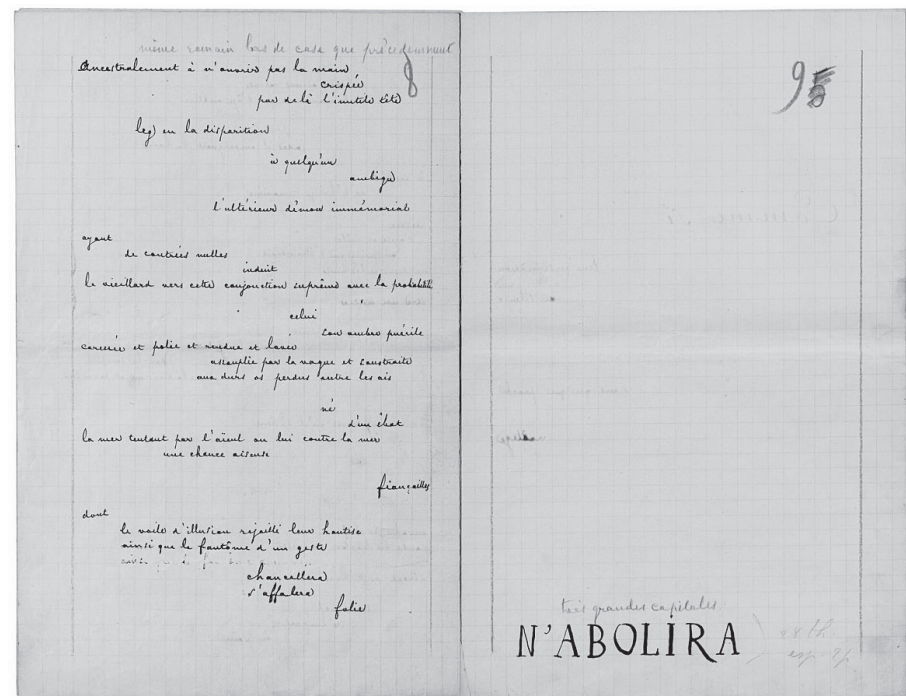 même romain bas de casse que précédemment
8
ancestralement à n'ouvrir pas la main
crispée
par delà l'inutile tête
legs en la disparition
à quelqu'un
ambigu
l'ultérieur démon immémorial
ayant
de contrées nulles
induit
le vieillard vers cette conjonction suprême avec la probabilité
celui
son ombre puérile
caressée et polie et rendue et lavée
assouplie par la vague et soustraite
aux durs os perdus entre les ais
né
d'un ébat
la mer tentant par l'aïeul ou lui contre la mer
une chance oiseuse
fiançailles
dont
le voile d'illusion rejailli leur hantise
ainsi que le fantôme d'un geste
chancellera
s'affalera
folie
9
très grandes capitales
N'ABOLIRA